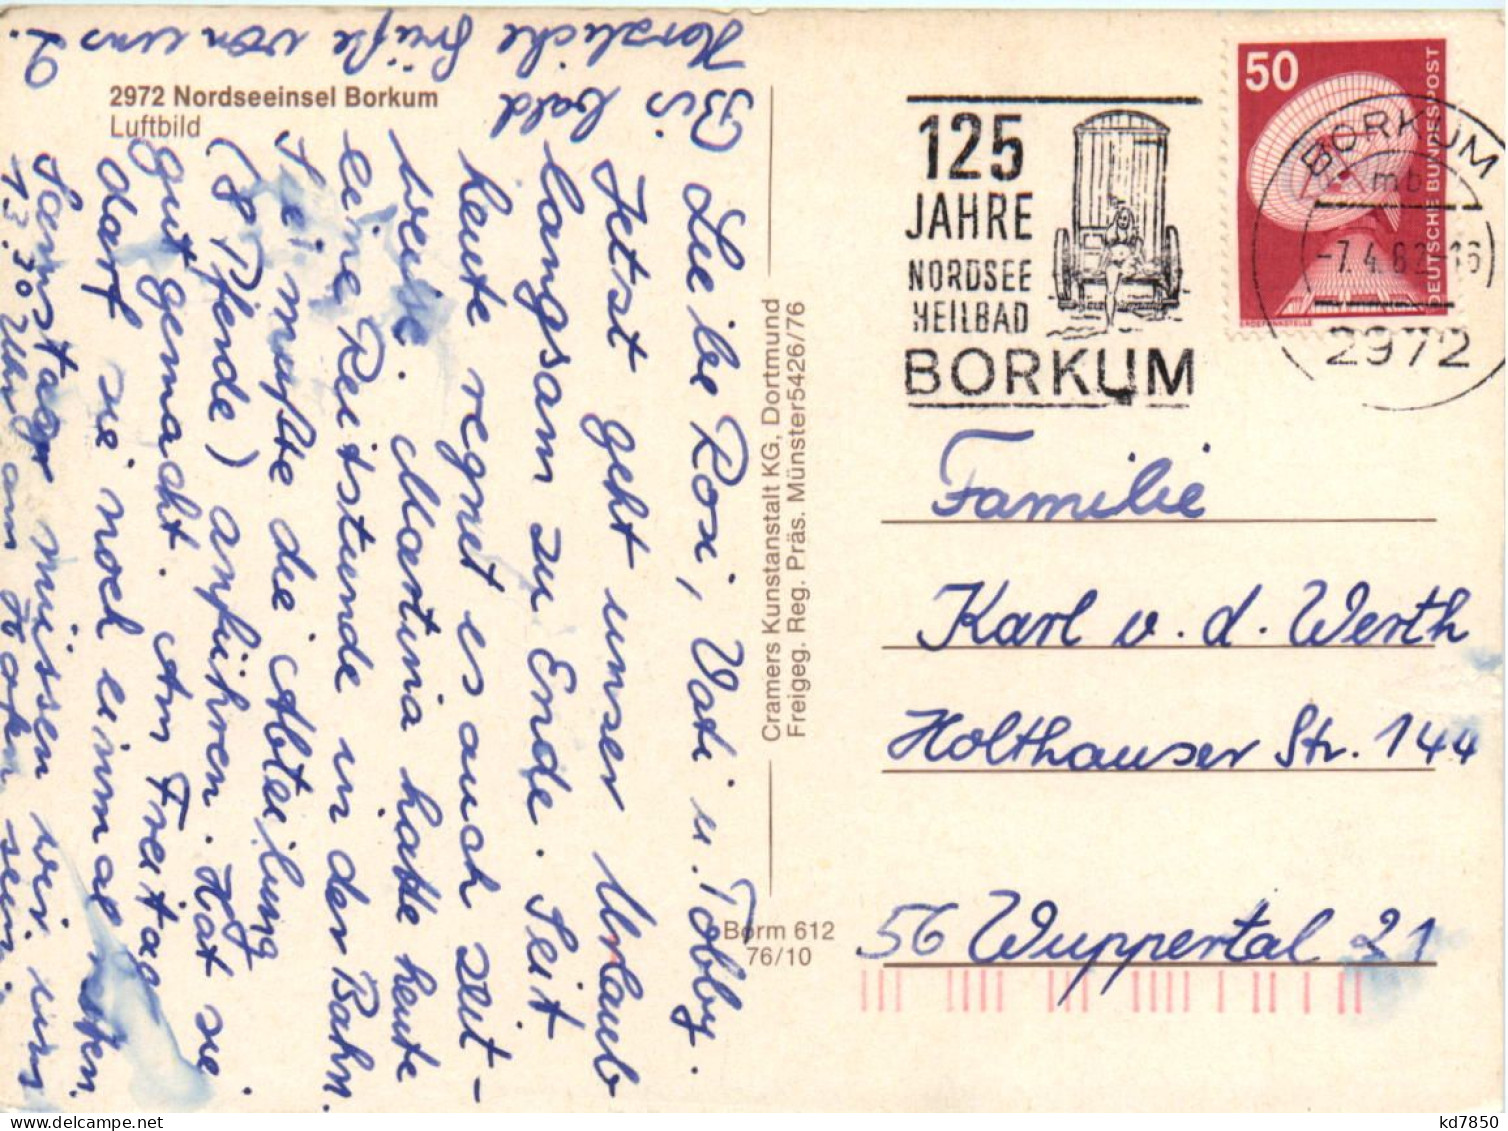 2972 Nordseeinsel Borkum
Luftbild
Liebe Roxi, Vati u. Tobby.
Jetzt geht unser Urlaub
langsam zu Ende. Seit
heute regnet es auch zeit-
weise. Martina hatte heute
eine Reitstunde in der Bahn.
Sie mußte die Abteilung
(8 Pferde) anführen. Hat sie
gut gemacht. Am Freitag
darf sie noch einmal reiten.
Samstag müssen wir um
13.30 Uhr am Hafen sein.
Bis bald
Herzliche Grüße von uns 2.
Cramers Kunstanstalt KG, Dortmund
Freigeg. Reg. Präs. Münster5426/76
Borm 612
76/10
125
JAHRE
NORDSEE
HEILBAD
BORKUM
50
DEUTSCHE BUNDESPOST
ERDEFUNKSTELLE
BORKUM
mb
-7.4.82-16
2972
Familie
Karl v. d. Werth
Holthauser Str. 144
56 Wuppertal 21
kd7850